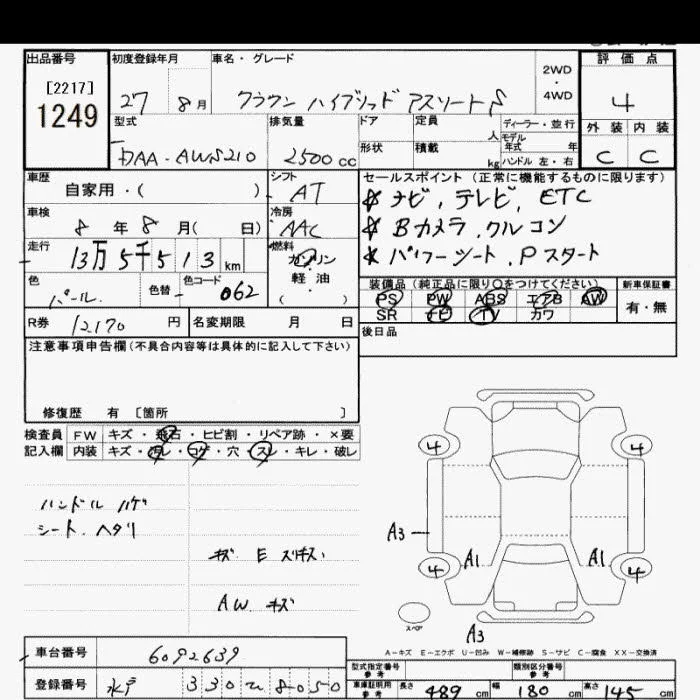 出品番号 初度登録年月 車名・グレード 2WD 4WD 評価点
[2217]
1249
27 8月 クラウン ハイブリッド アスリートS 4
型式 排気量 ドア 定員 人 ディーラー・並行 外装 内装
モデル年式 年
DAA-AWS210 2500cc 形状 積載 kg ハンドル 左・右 C C
車歴 自家用・( ) シフト AT セールスポイント(正常に機能するものに限ります)
☆ ナビ, テレビ, ETC
車検 8年8月( 日) 冷房 AAC ☆ Bカメラ, クルコン
走行 13万5千513km 燃料 ガソリン 軽・油 ( ) ☆ パワーシート, Pスタート
色 パール 色替 - 色コード 062 装備品(純正品に限り○をつけてください) 新車保証書
PS PW ABS エアB AW 有・無
SR ナビ TV カワ
R券 12170円 名変期限 月 日 後日品
注意事項申告欄(不具合内容等は具体的に記入して下さい)
修復歴 有 〔箇所 〕
検査員 FW キズ・飛石・ヒビ割・リペア跡・×要
記入欄 内装 キズ・汚レ・コゲ・穴・スレ・キレ・破レ
ハンドル ハゲ
シート ヘタリ
キズ E スリキズ
AW キズ
4 4
A3
4 A1 A1 4
スペア
A3
A-キズ E-エクボ U-凹み W-補修跡 S-サビ C-腐食 XX-交換済
車台番号 6092639 型式指定番号 参考 類別区分番号 参考
登録番号 水戸 330 て 8050 車庫証明用 参考 長さ 489cm 幅 180cm 高さ 145cm